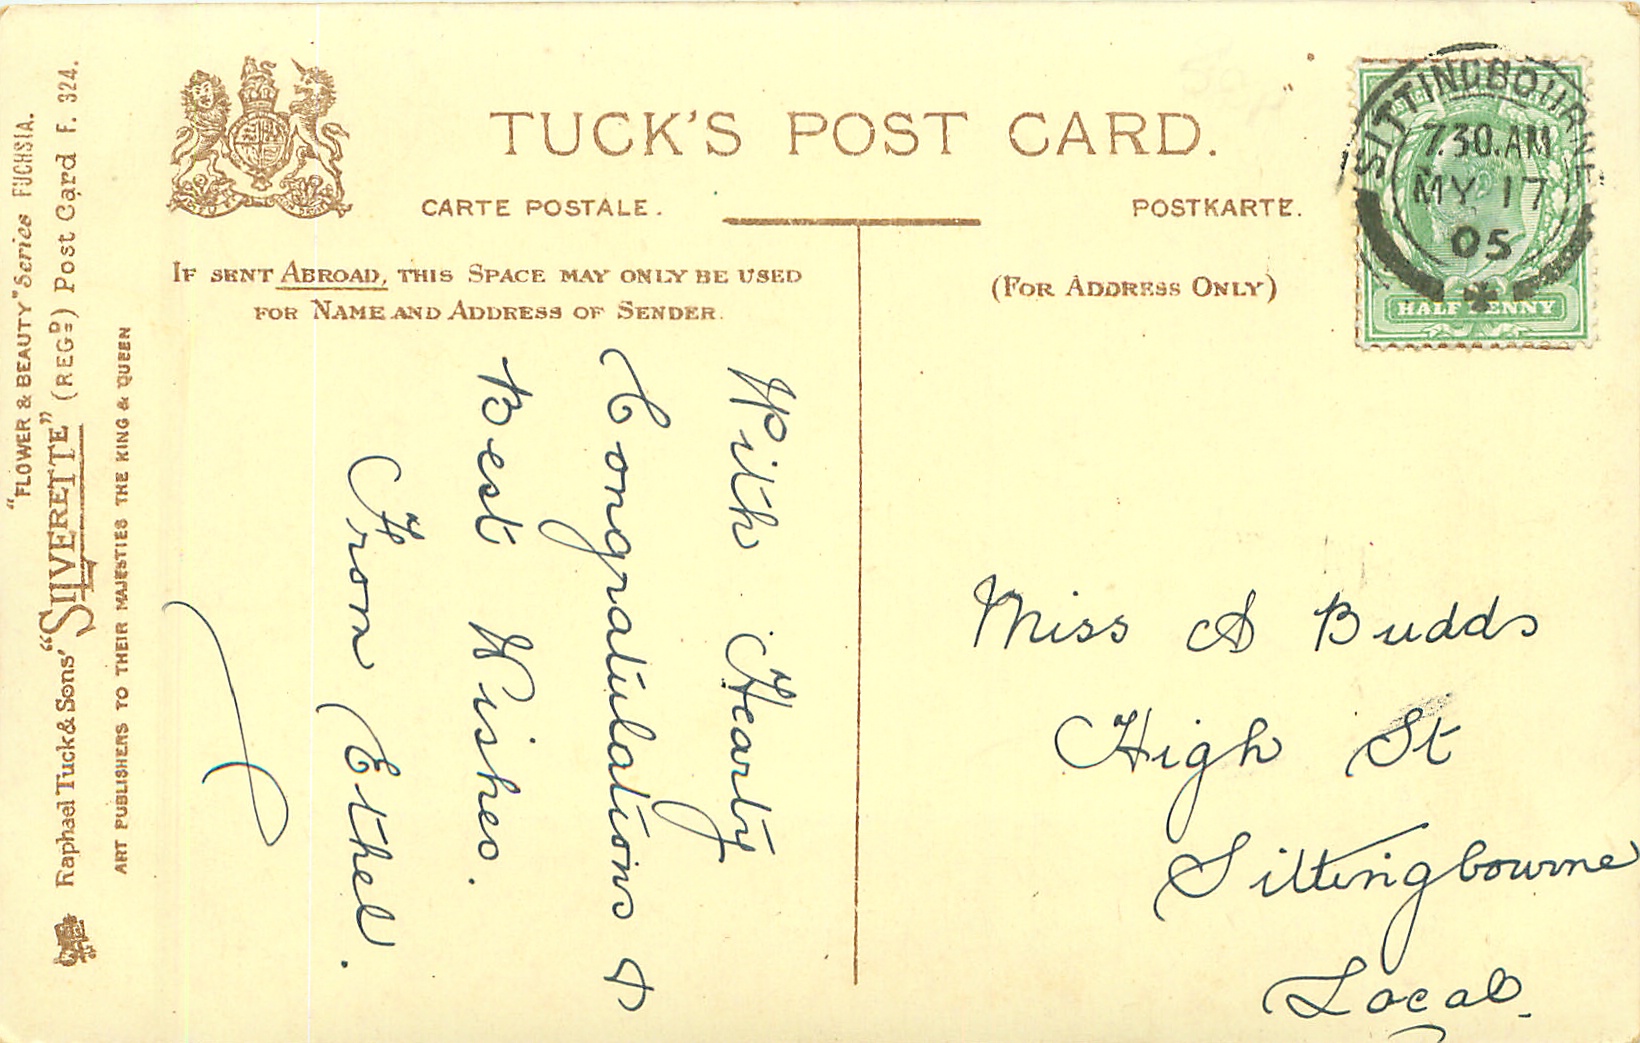 TUCK'S POST CARD.
CARTE POSTALE.
POSTKARTE.
IF SENT ABROAD, THIS SPACE MAY ONLY BE USED
FOR NAME AND ADDRESS OF SENDER.
(FOR ADDRESS ONLY)
SITTINGBOURNE
7.30.AM
MY 17
05
HALF PENNY
With Hearty
Congratulations &
Best Wishes.
From Ethel.
Miss A Budds
High St
Sittingbourne
Local.
"FLOWER & BEAUTY" Series FUCHSIA.
Raphael Tuck & Sons' "SILVERETTE" (REGD) Post Card F. 324.
ART PUBLISHERS TO THEIR MAJESTIES THE KING & QUEEN